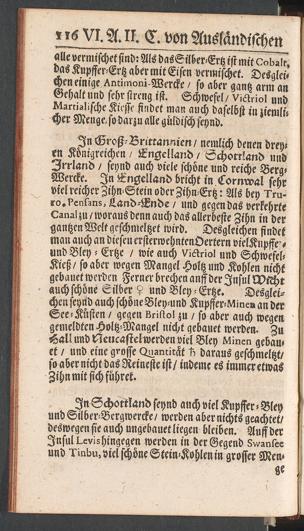 116 VI. A. II. C. von Ausländischen
alle vermischet sind: Als das Silber-Ertz ist mit Cobalt,
das Kupffer-Ertz aber mit Eisen vermischet. Desglei-
chen einige Antimoni-Wercke / so aber gantz arm an
Gehalt und sehr streng ist. Schwefel, Victriol und
Martialische Kiesse findet man auch daselbst in ziemli-
cher Menge, so darzu alle güldisch seynd.
In Groß-Brittannien / nemlich denen drey-
en Königreichen / Engelland / Schottland und
Irrland / seynd auch viele schöne und reiche Berg-
Wercke. In Engelland bricht in Cornwal sehr
viel reicher Zihn-Stein oder Zihn-Ertz: Als bey Tru-
ro, Pensans, Land-Ende / und gegen das verkehrte
Canal zu / woraus denn auch das allerbeste Zihn in der
gantzen Welt geschmeltzet wird. Desgleichen findet
man auch an diesen ersterwehnten Oertern viel Kupffer-
und Bley-Ertze / wie auch Victriol und Schwefel-
Kieß / so aber wegen Mangel Holtz und Kohlen nicht
gebauet werden Ferner brechen auff der Insul Wicht
auch schöne Silber ♀ und Bley-Ertze. Desglei-
chen seynd auch schöne Bley-und Kupffer-Minen an der
See-Küsten / gegen Bristol zu / so aber auch wegen
gemeldten Holtz-Mangel nicht gebauet werden. Zu
Hall und Neucastel werden viel Bley Minen gebau-
et / und eine grosse Quantität ♄ daraus geschmeltzt /
so aber nicht das Reineste ist / indeme es immer etwas
Zihn mit sich führet.
In Schottland seynd auch viel Kupffer-Bley
und Silber-Bergwercke / werden aber nichts geachtet /
deswegen sie auch ungebauet liegen bleiben. Auff der
Insul Levis hingegen werden in der Gegend Swansee
und Tinbu, viel schöne Stein-Kohlen in grosser Men-
ge